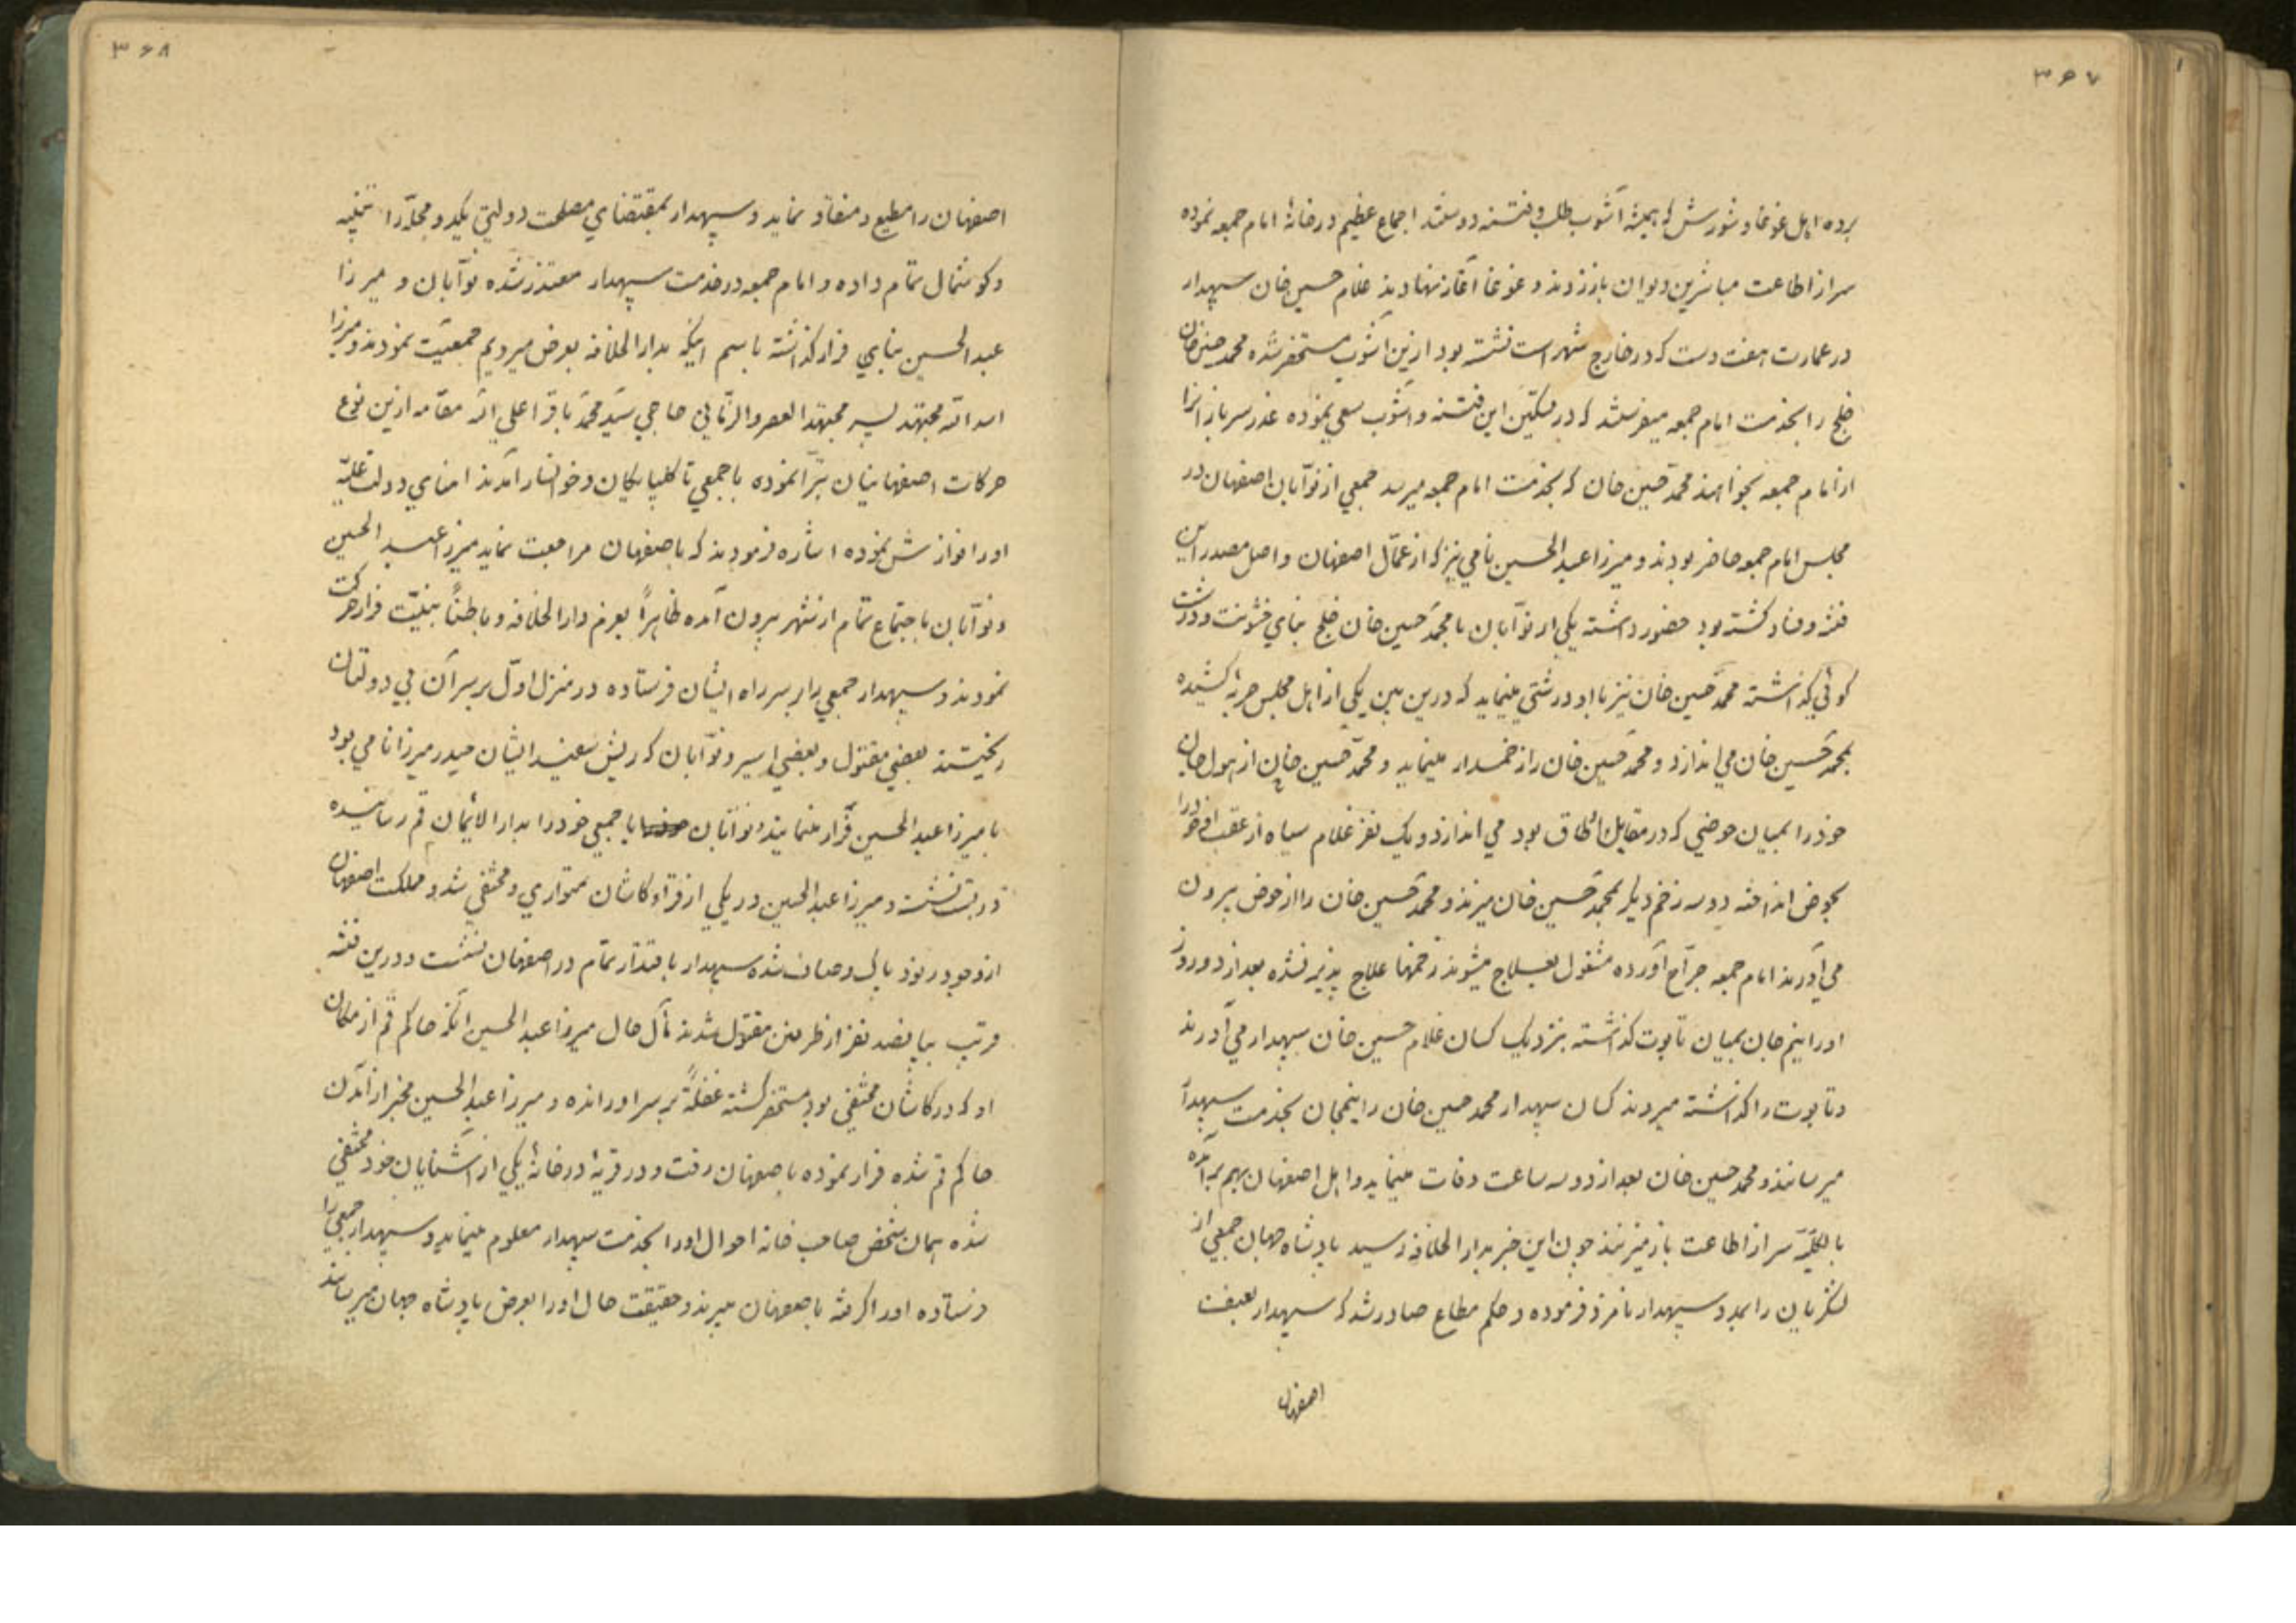 ۳۶۷
برده اهل غوغا و شورش که همیشه آشوب طلب و فتنه دوستند اجماع عظیم در خانهٔ امام جمعه نموده
سر از اطاعت مباشرین دیوان باز زدند و غوغا آغاز نهادند غلام حسین خان سپهدار
در عمارت هفت دست که در خارج شهر است نشسته بود ازین آشوب مستحضر شده محمد حسین خان
خلج را بخدمت امام جمعه میفرستد که در تسکین این فتنه و آشوب سعی نموده عذر سربازانرا
از امام جمعه بخواهند محمد حسین خان که بخدمت امام جمعه میرسد جمعی از نوّابان اصفهان در
مجلس امام جمعه حاضر بودند و میرزا عبدالحسین نامی نیز که از عمّال اصفهان و اصل مصدر این
فتنه و فساد گشته بود حضور داشته یکی از نوّابان با محمد حسین خان خلج بنای خشونت و درشت
گوئی گذاشته محمد حسین خان نیز با او درشتی مینماید که درین بین یکی از اهل مجلس حربهٔ کشیده
بمحمد حسین خان می اندازد و محمد حسین خان را زخمدار مینماید و محمد حسین خان از هول جان
خود را بمیان حوضی که در مقابل اطاق بود می اندازد و یک نفر غلام سیاه از عقب او خود را
بحوض انداخته دو سه زخم دیگر بمحمد حسین خان میزند و محمد حسین خان را از حوض بیرون
می آورند امام جمعه جرّاح آورده مشغول بعلاج میشوند زخمها علاج پذیر نشده بعد از دو روز
او را نیم جان بمیان تابوت گذاشته بنزدیک کسان غلام حسین خان سپهدار می آورند
و تابوت را گذاشته میروند کسان سپهدار محمد حسین خان را نیمجان بخدمت سپهدار
میرسانند و محمد حسین خان بعد از دو سه ساعت وفات مینماید و اهل اصفهان بهم برآمده
بالکلیّه سر از اطاعت باز میزنند چون این خبر بدار الخلافه رسید پادشاه جهان جمعی از
لشکریان را بمدد سپهدار نامزد فرموده و حکم مطاع صادر شد که سپهدار بعنف
اصفهان
۳۶۸
اصفهان را مطیع و منقاد نماید و سپهدار بمقتضای مصلحت دولتی یکدو محلّه را تنبیه
و گوشمال تمام داده و امام جمعه در خدمت سپهدار معتذر شده نوّابان و میرزا
عبدالحسین بنای فرار گذاشته باسم اینکه بدار الخلافه بعرض میرویم جمعیّت نمودند و میرزا
اسد الله مجتهد پسر مجتهد العصر و الزّمانی حاجی سیّد محمّد باقر اعلی الله مقامه ازین نوع
حرکات اصفهانیان تبرّا نموده با جمعی تا گلپایگان و خوانسار آمدند امنای دولت علیّه
او را نوازش نموده اشاره فرمودند که باصفهان مراجعت نماید میرزا عبدالحسین
و نوّابان باجتماع تمام از شهر بیرون آمده ظاهراً بعزم دار الخلافه و باطناً بنیّت فرار حرکت
نمودند و سپهدار جمعی را بر سر راه ایشان فرستاده در منزل اوّل بر سر آن بی دولتان
ریختند بعضی مقتول و بعضی اسیر و نوّابان که ریش سفید ایشان حیدر میرزا نامی بود
با میرزا عبدالحسین فرار مینمایند و نوّابان با جمعی خود را بدار الایمان قم رسانیده
در بست نشست و میرزا عبدالحسین در یکی از قراء کاشان متواری و مختفی شد و مملکت اصفهان
ازو جود پاک و صاف شده سپهدار باقتدار تمام در اصفهان نشست و درین فتنه
قریب بپانصد نفر از طرفین مقتول شدند مآل حال میرزا عبدالحسین آنکه حاکم قم از مکان
او که در کاشان مختفی بود مستحضر گشته غفلةً بر سر او رانده و میرزا عبدالحسین مخبر از آمدن
حاکم قم شده فرار نموده باصفهان رفت و در قریهٔ در خانهٔ یکی از آشنایان خود مختفی
شده همان شخص صاحب خانه احوال او را بخدمت سپهدار معلوم مینماید و سپهدار جمعی را
فرستاده او را گرفته باصفهان میبرند و حقیقت حال او را بعرض پادشاه جهان میرساند